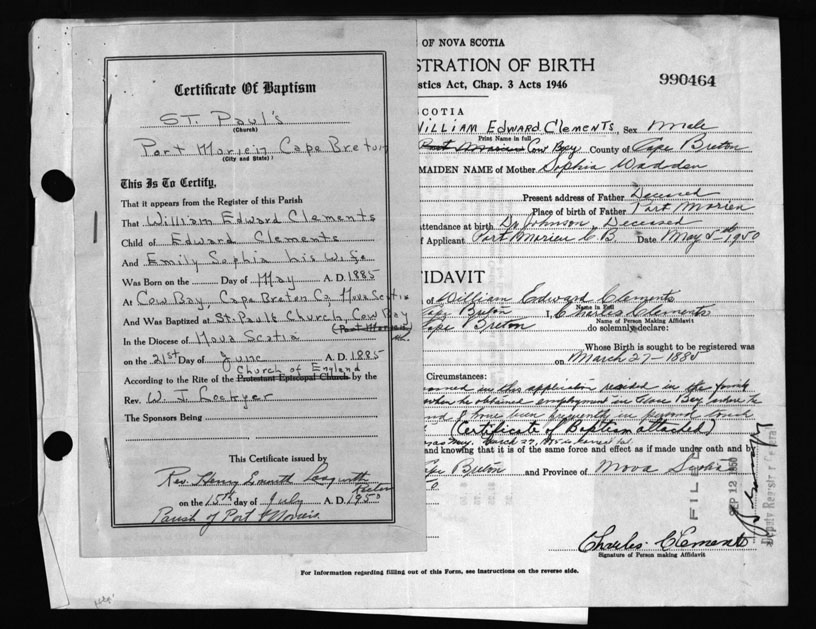 Certificate Of Baptism
ST. Paul's
(Church)
Port Morien Cape Breton
(City and State)
This Is To Certify,
That it appears from the Register of this Parish
That William Edward Clements
Child of Edward Clements
And Emily Sophia his wife
Was Born on the Day of May A. D. 1885
At Cow Bay, Cape Breton Co. Nova Scotia
And Was Baptized at St. Pauls Church, Cow Bay
(Port Morien)
In the Diocese of Nova Scotia
on the 21st Day of June A. D. 1885
Church of England
According to the Rite of the Protestant Episcopal Church by the
Rev. W. J. Lockyer
The Sponsors Being
This Certificate issued by
Rev. Henry
on the 15th day of July A. D. 1950
Parish of Port Morien
OF NOVA SCOTIA
STRATION OF BIRTH
istics Act, Chap. 3 Acts 1946
990464
SCOTIA
William Edward Clements, Sex Male
Print Name in full
Port Morien Cow Bay County of Cape Breton
MAIDEN NAME of Mother Sophia Wadden
Present address of Father Deceased
Place of birth of Father Port Morien
attendance at birth Dr Johnson, Deceased
of Applicant Port Morien C.B. Date May 5th 1950
FIDAVIT
of William Edward Clements
Name in Full
Cape Breton I, Charles Clements
Name of Person Making Affidavit
Cape Breton do solemnly declare:
Whose Birth is sought to be registered was
on March 27-1885
Circumstances:
named in this application resided in the family
when he obtained employment in Glace Bay where he
and I have been frequently in personal touch
(Certificate of Baptism attached)
May. March 27,
and knowing that it is of the same force and effect as if made under oath and by
Cape Breton and Province of Nova Scotia
FILED
SEP 12 1950
Deputy Registrar General
Charles Clements
Signature of Person making Affidavit
For Information regarding filling out of this Form, see Instructions on the reverse side.